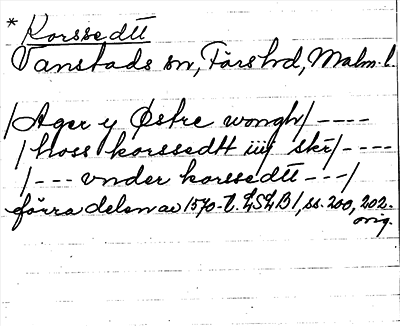 * Korssedtt
Vanstads sn, Färs hd, Malm. l.
/Ager y Østre wongh/ ----
/hoss korssedtt iiij skr/ ----
/--- vnder korssedtt ---/
förra delen av 1570-t. LSLB 1, ss. 200, 202.
orig.